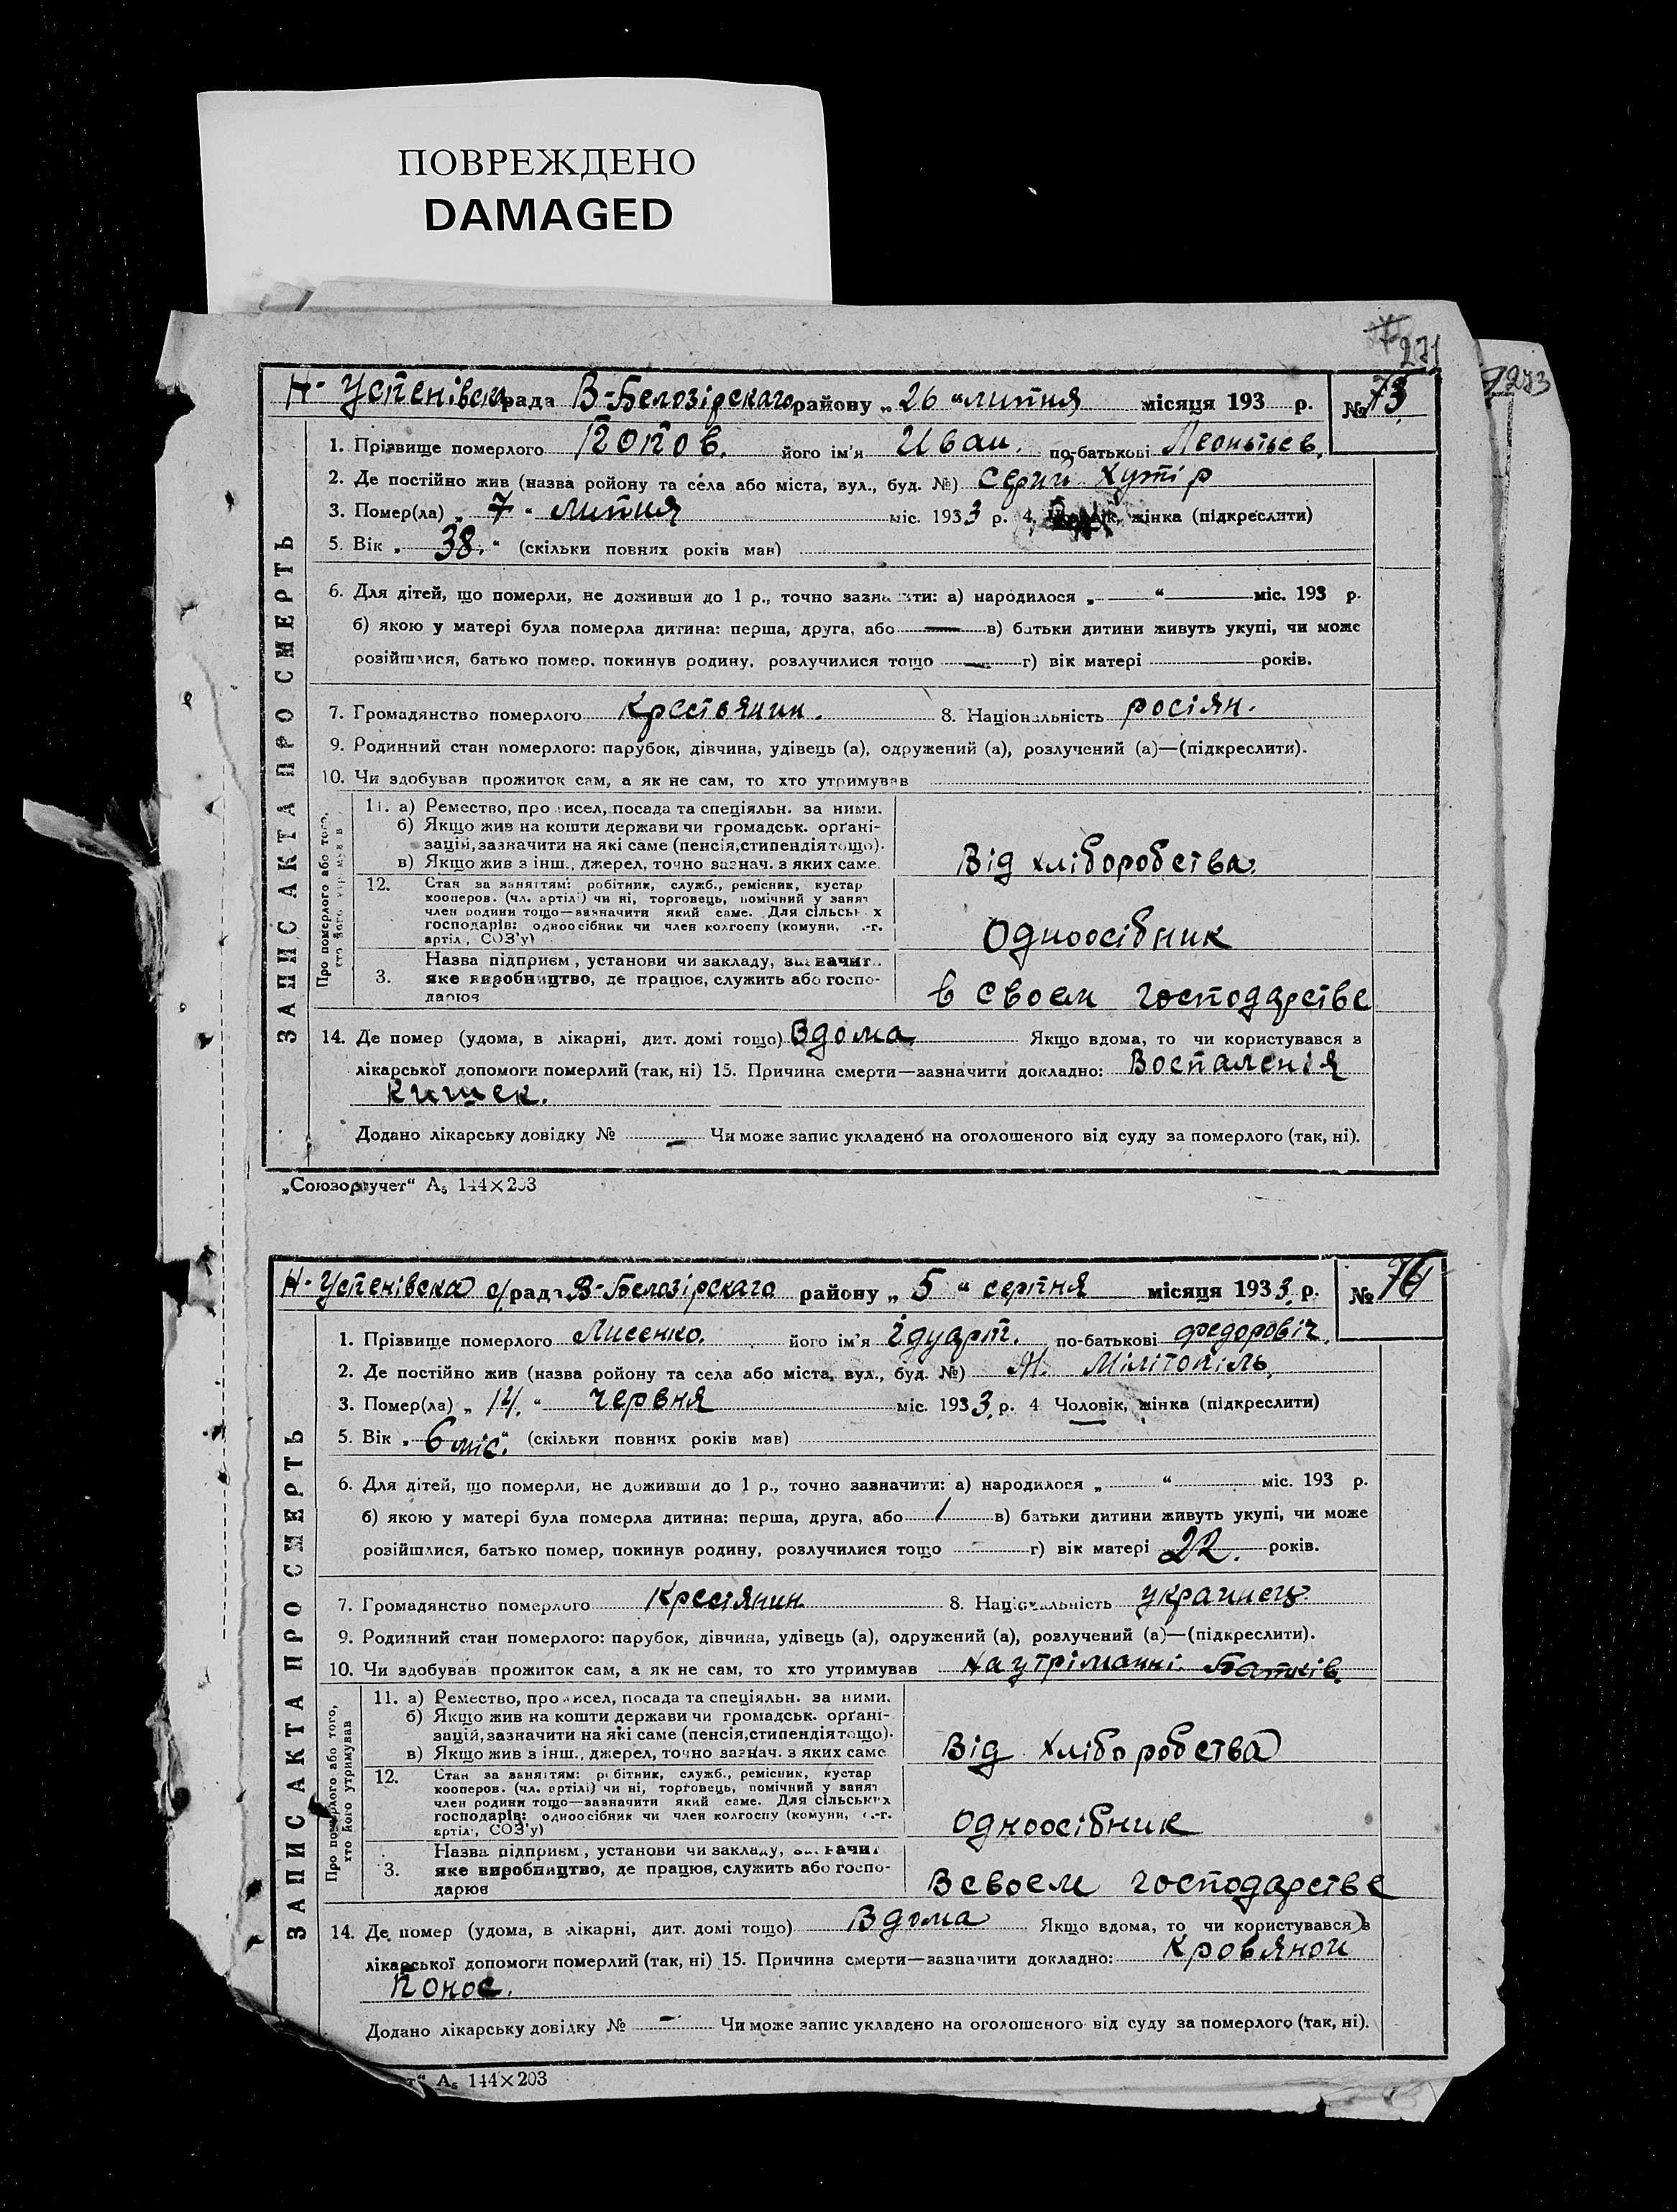 ПОВРЕЖДЕНО
DAMAGED
271
273
Н-Успенівска рада В-Белозірскаго району „26" липня місяця 193 р. № 73
ЗАПИС АКТА ПРО СМЕРТЬ
1. Прізвище померлого Попов. його ім'я Иван. по-батькові Леонтьев.
2. Де постійно жив (назва ройону та села або міста, вул., буд. №) Серий Хутір
3. Помер(ла) „7" липня міс. 1933 р. 4. жінка (підкреслити)
5. Вік „38." (скільки повних років мав)
6. Для дітей, що померли, не доживши до 1 р., точно зазначити: а) народилося „—"— міс. 193 р.
б) якою у матері була померла дитина: перша, друга, або — в) батьки дитини живуть укупі, чи може
розійшлися, батько помер, покинув родину, розлучилися тощо — г) вік матері років.
7. Громадянство померлого Крестянин. 8. Національність росіян.
9. Родинний стан померлого: парубок, дівчина, удівець (а), одружений (а), розлучений (а)—(підкреслити).
10. Чи здобував прожиток сам, а як не сам, то хто утримував
Про померлого або того, хто його утримував
11. а) Ремество, промисел, посада та спеціяльн. за ними.
б) Якщо жив на кошти держави чи громадськ. орґані-
зацій, зазначити на які саме (пенсія, стипендія тощо).
в) Якщо жив з інш., джерел, точно зазнач. з яких саме.
Від хліборобства.
12. Стан за заняттям: робітник, служб., ремісник, кустар
кооперов. (чл. артілі) чи ні, торговець, помічний у занят
член родини тощо—зазначити який саме. Для сільських
господарів: одноосібник чи член колгоспу (комуни, с.-г.
артіл., СОЗ'у)
Одноосібник
3. Назва підприєм, установи чи закладу, зазначит
яке виробництво, де працює, служить або госпо-
дарює
в своем господарстве
14. Де помер (удома, в лікарні, дит. домі тощо) Вдома Якщо вдома, то чи користувався з
лікарської допомоги померлий (так, ні) 15. Причина смерти—зазначити докладно: Воспаленія
Кишек.
Додано лікарську довідку № — Чи може запис укладено на оголошеного від суду за померлого (так, ні).
„Союзоргучет" А₅ 144×203
Н-Успенівска с/рада В-Белозірскаго району „5" серпня місяця 1933 р. № 74
ЗАПИС АКТА ПРО СМЕРТЬ
1. Прізвище померлого Лисенко. його ім'я Едуарт. по-батькові Федоровіч.
2. Де постійно жив (назва ройону та села або міста, вул., буд. №) М. Мілітопіль,
3. Помер(ла) „14." червня міс. 1933 р. 4 Чоловік, жінка (підкреслити)
5. Вік „6 міс." (скільки повних років мав)
6. Для дітей, що померли, не доживши до 1 р., точно зазначити: а) народилося „ " міс. 193 р.
б) якою у матері була померла дитина: перша, друга, або 1 в) батьки дитини живуть укупі, чи може
розійшлися, батько помер, покинув родину, розлучилися тощо г) вік матері 22. років.
7. Громадянство померлого Крестянин 8. Національність украинець.
9. Родинний стан померлого: парубок, дівчина, удівець (а), одружений (а), розлучений (а)—(підкреслити).
10. Чи здобував прожиток сам, а як не сам, то хто утримував На утріманні Батьків.
Про померлого або того, хто його утримував
11. а) Ремество, промисел, посада та спеціяльн. за ними.
б) Якщо жив на кошти держави чи громадськ. орґані-
зацій, зазначити на які саме (пенсія, стипендія тощо).
в) Якщо жив з інш., джерел, точно зазнач. з яких саме
Від Хліборобства
12. Стан за заняттям: робітник, служб., ремісник, кустар
кооперов. (чл. артілі) чи ні, торговець, помічний у занят
член родини тощо—зазначити який саме. Для сільських
господарів: одноосібник чи член колгоспу (комуни, с.-г.
артіл., СОЗ'у)
Одноосібник
3. Назва підприєм, установи чи закладу, зазначит
яке виробництво, де працює, служить або госпо-
дарює
В своем господарстве
14. Де помер (удома, в лікарні, дит. домі тощо) Вдома Якщо вдома, то чи користувався з
лікарської допомоги померлий (так, ні) 15. Причина смерти—зазначити докладно: Кровяной
Понос.
Додано лікарську довідку № — Чи може запис укладено на оголошеного від суду за померлого (так, ні).
т" А₅ 144×203